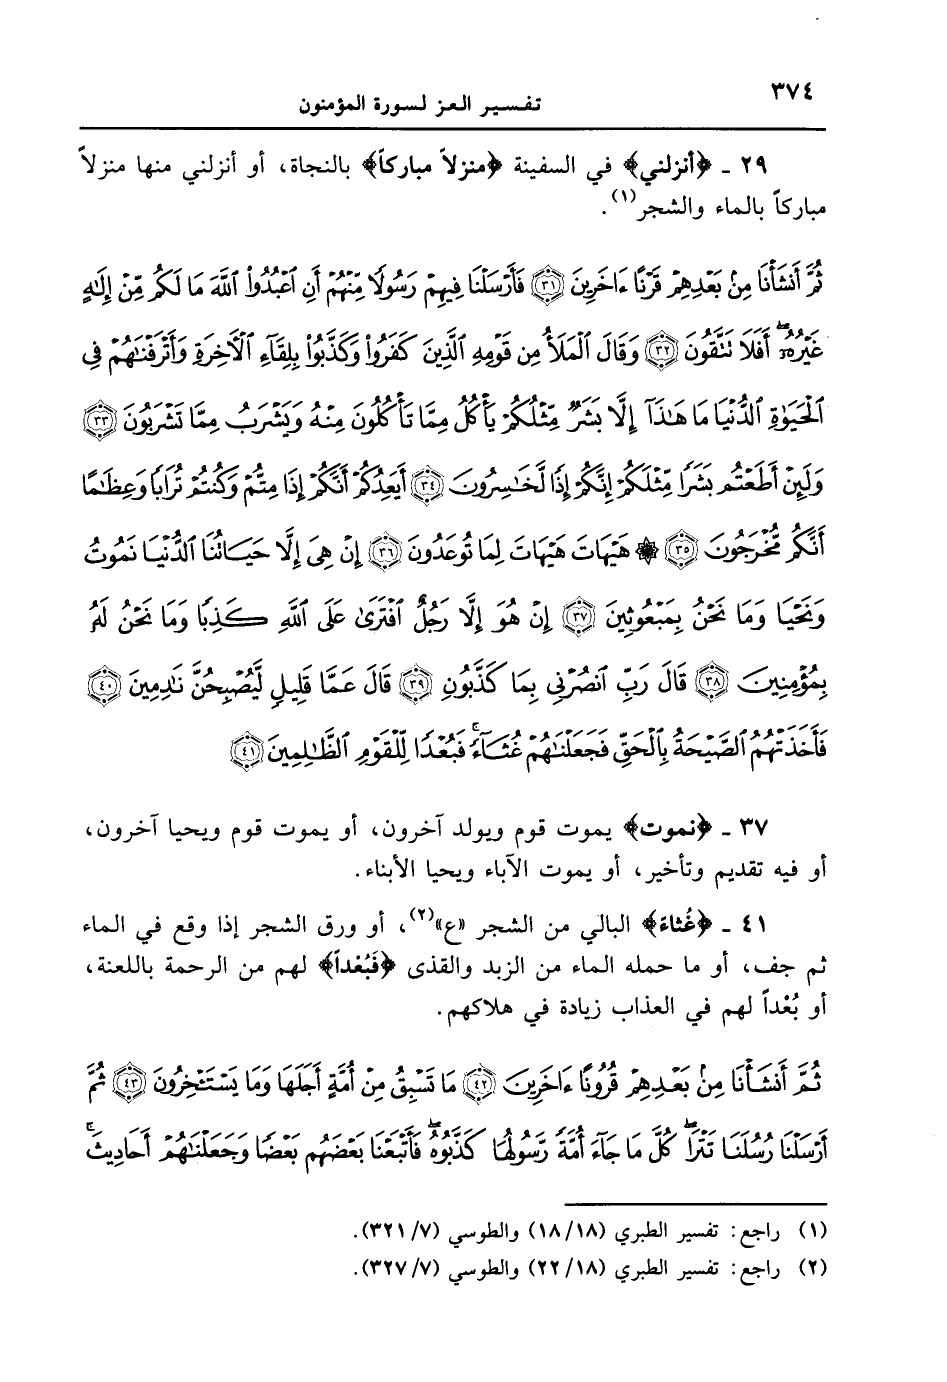 ٣٧٤
تفسير العز لسورة المؤمنون
٢٩ ـ ﴿أنزلني﴾ في السفينة ﴿منزلاً مباركاً﴾ بالنجاة، أو أنزلني منها منزلاً
مباركاً بالماء والشجر(١).
ثُمَّ أَنشَأْنَا مِنۢ بَعْدِهِمْ قَرْنًا ءَاخَرِينَ ﴿٣١﴾ فَأَرْسَلْنَا فِيهِمْ رَسُولًا مِّنْهُمْ أَنِ ٱعْبُدُوا۟ ٱللَّهَ مَا لَكُم مِّنْ إِلَٰهٍ
غَيْرُهُۥٓ ۖ أَفَلَا تَتَّقُونَ ﴿٣٢﴾ وَقَالَ ٱلْمَلَأُ مِن قَوْمِهِ ٱلَّذِينَ كَفَرُوا۟ وَكَذَّبُوا۟ بِلِقَآءِ ٱلْءَاخِرَةِ وَأَتْرَفْنَٰهُمْ فِى
ٱلْحَيَوٰةِ ٱلدُّنْيَا مَا هَٰذَآ إِلَّا بَشَرٌ مِّثْلُكُمْ يَأْكُلُ مِمَّا تَأْكُلُونَ مِنْهُ وَيَشْرَبُ مِمَّا تَشْرَبُونَ ﴿٣٣﴾
وَلَئِنْ أَطَعْتُم بَشَرًا مِّثْلَكُمْ إِنَّكُمْ إِذًا لَّخَٰسِرُونَ ﴿٣٤﴾ أَيَعِدُكُمْ أَنَّكُمْ إِذَا مِتُّمْ وَكُنتُمْ تُرَابًا وَعِظَٰمًا
أَنَّكُم مُّخْرَجُونَ ﴿٣٥﴾ ۞ هَيْهَاتَ هَيْهَاتَ لِمَا تُوعَدُونَ ﴿٣٦﴾ إِنْ هِىَ إِلَّا حَيَاتُنَا ٱلدُّنْيَا نَمُوتُ
وَنَحْيَا وَمَا نَحْنُ بِمَبْعُوثِينَ ﴿٣٧﴾ إِنْ هُوَ إِلَّا رَجُلٌ ٱفْتَرَىٰ عَلَى ٱللَّهِ كَذِبًا وَمَا نَحْنُ لَهُۥ
بِمُؤْمِنِينَ ﴿٣٨﴾ قَالَ رَبِّ ٱنصُرْنِى بِمَا كَذَّبُونِ ﴿٣٩﴾ قَالَ عَمَّا قَلِيلٍ لَّيُصْبِحُنَّ نَٰدِمِينَ ﴿٤٠﴾
فَأَخَذَتْهُمُ ٱلصَّيْحَةُ بِٱلْحَقِّ فَجَعَلْنَٰهُمْ غُثَآءً ۚ فَبُعْدًا لِّلْقَوْمِ ٱلظَّٰلِمِينَ ﴿٤١﴾
٣٧ ـ ﴿نموت﴾ يموت قوم ويولد آخرون، أو يموت قوم ويحيا آخرون،
أو فيه تقديم وتأخير، أو يموت الآباء ويحيا الأبناء.
٤١ ـ ﴿غُثاءً﴾ البالي من الشجر «ع»(٢)، أو ورق الشجر إذا وقع في الماء
ثم جف، أو ما حمله الماء من الزبد والقذى ﴿فَبُعْداً﴾ لهم من الرحمة باللعنة،
أو بُعْداً لهم في العذاب زيادة في هلاكهم.
ثُمَّ أَنشَأْنَا مِنۢ بَعْدِهِمْ قُرُونًا ءَاخَرِينَ ﴿٤٢﴾ مَا تَسْبِقُ مِنْ أُمَّةٍ أَجَلَهَا وَمَا يَسْتَـْٔخِرُونَ ﴿٤٣﴾ ثُمَّ
أَرْسَلْنَا رُسُلَنَا تَتْرَا ۖ كُلَّ مَا جَآءَ أُمَّةً رَّسُولُهَا كَذَّبُوهُ ۚ فَأَتْبَعْنَا بَعْضَهُم بَعْضًا وَجَعَلْنَٰهُمْ أَحَادِيثَ ۚ
(١) راجع: تفسير الطبري (١٨/١٨) والطوسي (٣٢١/٧).
(٢) راجع: تفسير الطبري (٢٢/١٨) والطوسي (٣٢٧/٧).